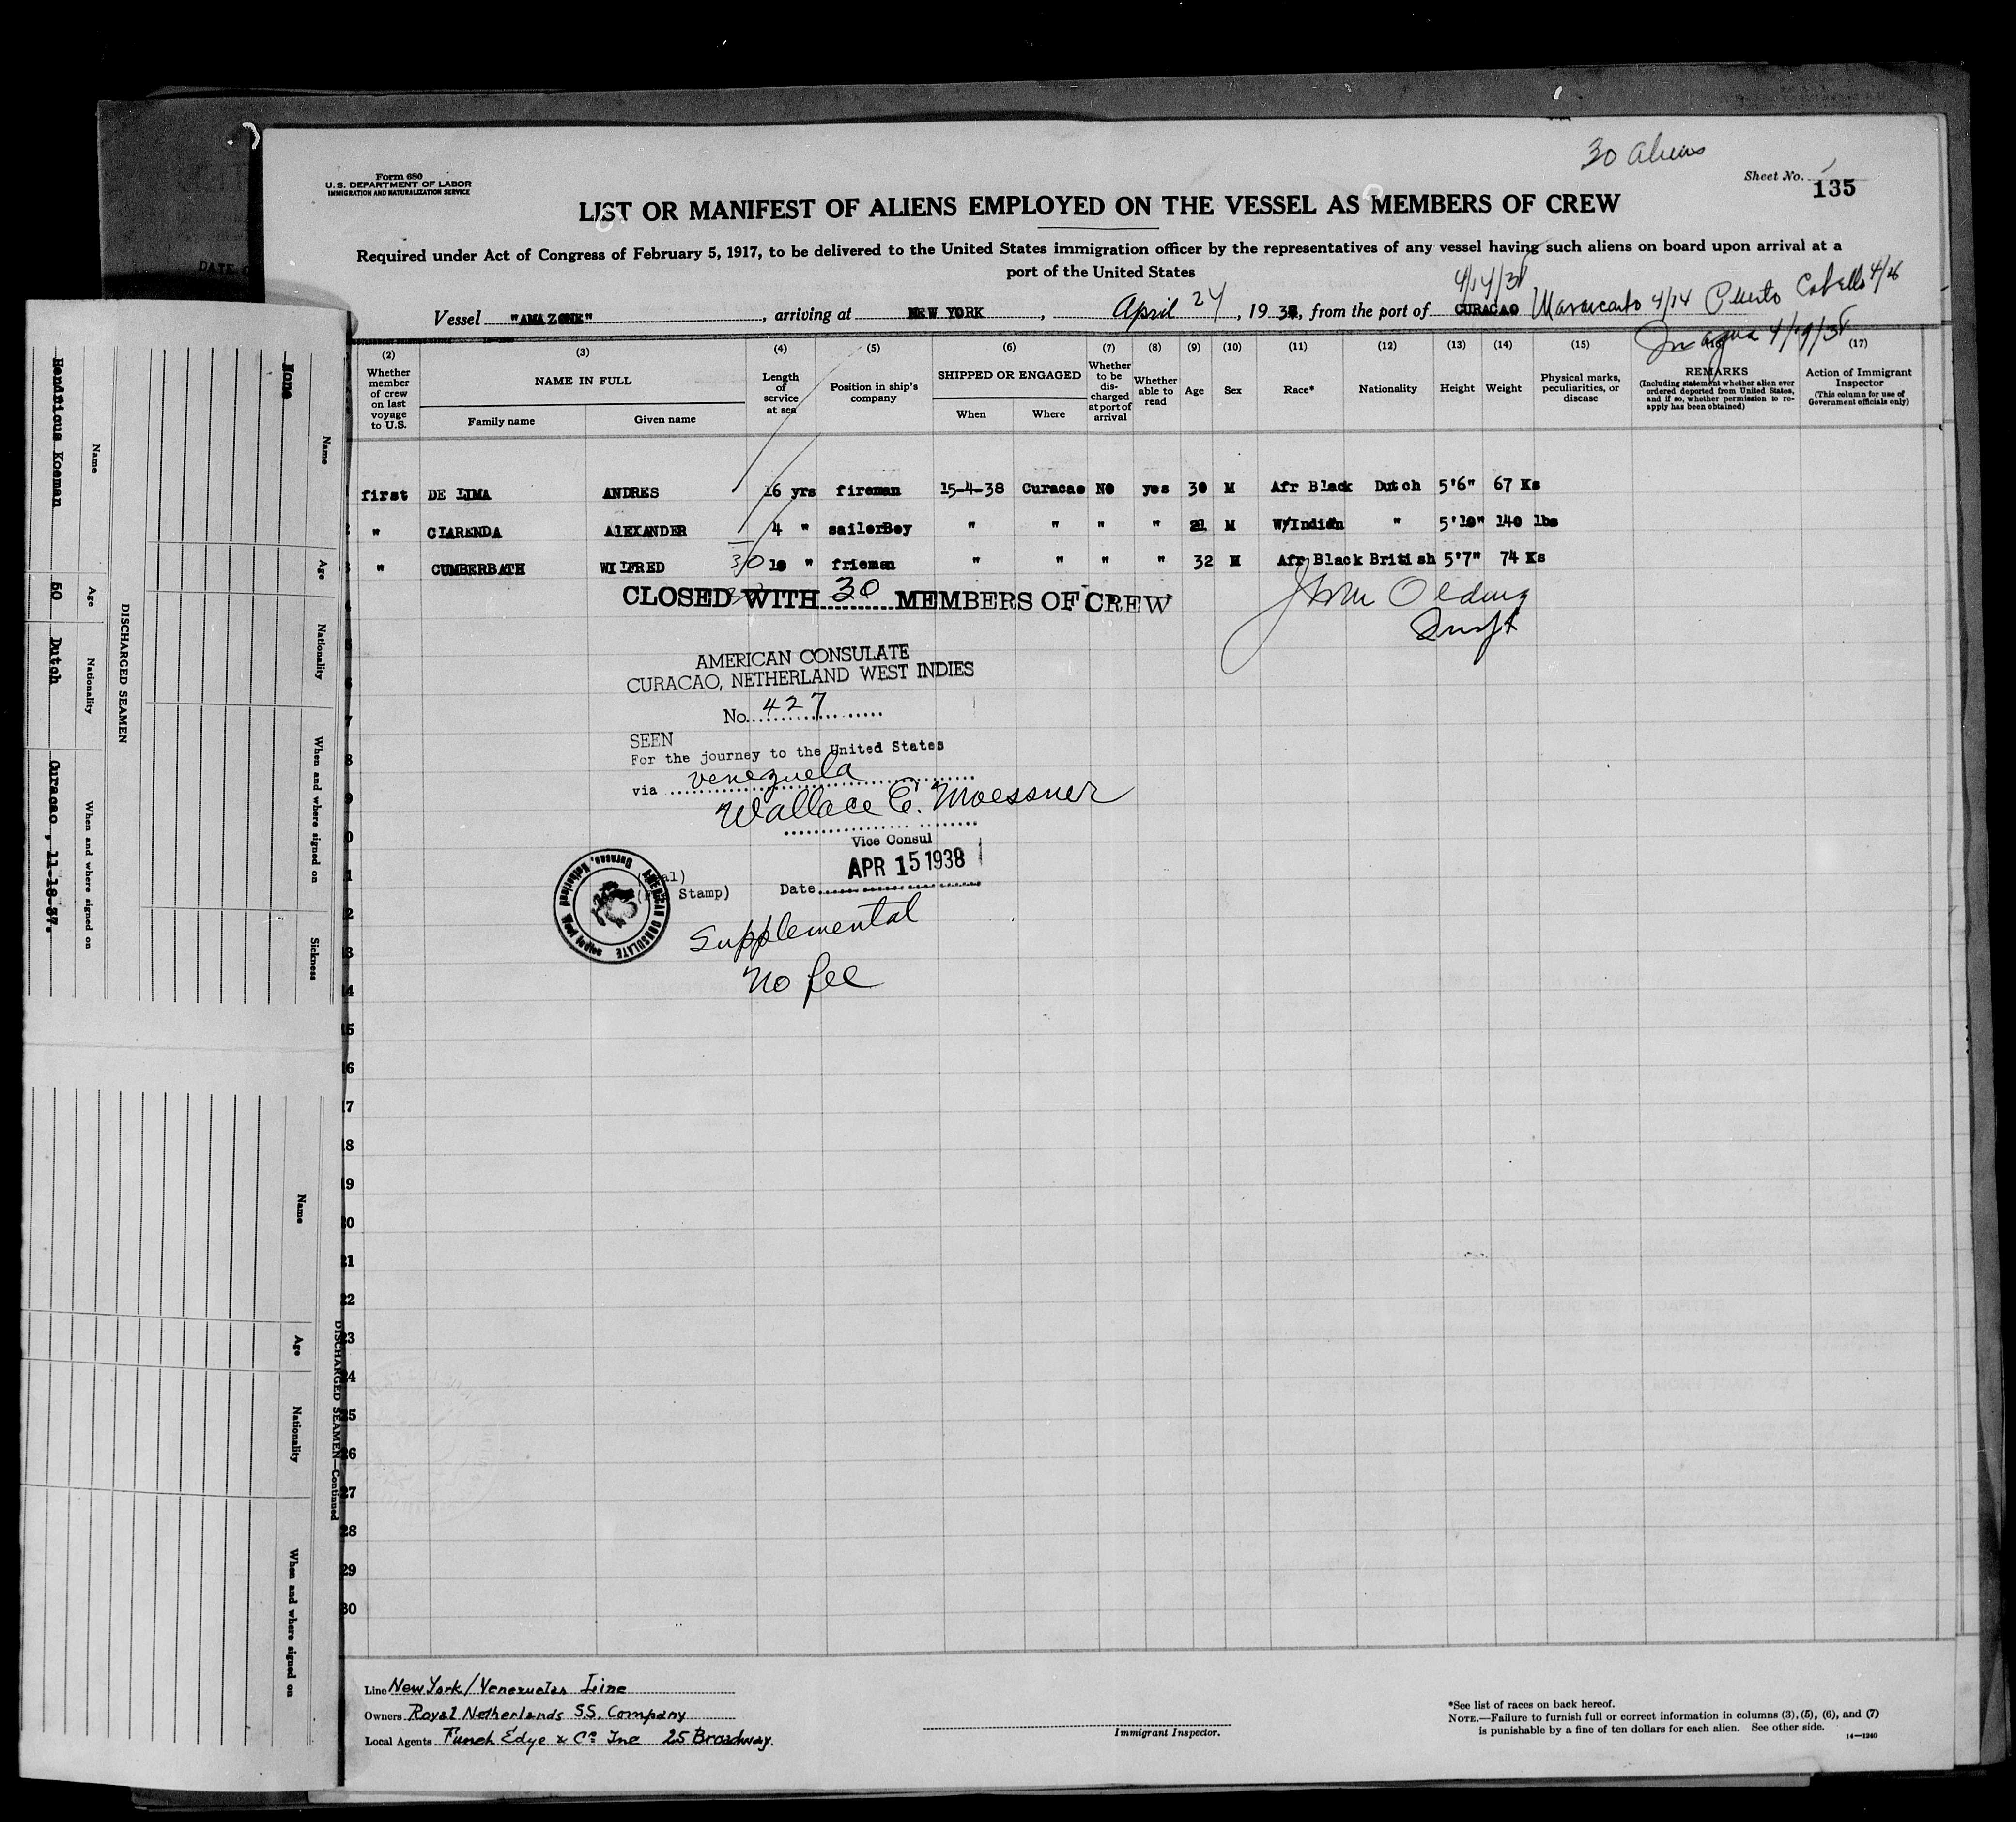 30 Aliens
Form 680
U.S. DEPARTMENT OF LABOR
IMMIGRATION AND NATURALIZATION SERVICE
Sheet No. 1
135
LIST OR MANIFEST OF ALIENS EMPLOYED ON THE VESSEL AS MEMBERS OF CREW
Required under Act of Congress of February 5, 1917, to be delivered to the United States immigration officer by the representatives of any vessel having such aliens on board upon arrival at a
port of the United States
4/14/38
Vessel "AMAZONE", arriving at NEW YORK, April 24, 1938, from the port of CURACAO Maracaibo 4/14 Puerto Cabello 4/16
Inagua 4/19/38
(2) (3) (4) (5) (6) (7) (8) (9) (10) (11) (12) (13) (14) (15) (17)
Whether member of crew on last voyage to U.S.
NAME IN FULL
Family name
Given name
Length of service at sea
Position in ship's company
SHIPPED OR ENGAGED
When
Where
Whether to be discharged at port of arrival
Whether able to read
Age
Sex
Race*
Nationality
Height
Weight
Physical marks, peculiarities, or disease
REMARKS
(Including statement whether alien ever ordered deported from United States, and if so, whether permission to reapply has been obtained)
Action of Immigrant Inspector
(This column for use of Government officials only)
first DE LIMA ANDRES 16 yrs fireman 15-4-38 Curacao NO yes 30 M Afr Black Dutch 5'6" 67 Ks
" CLARENDA ALEXANDER 4 " sailerBoy " " " " 21 M W/Indian " 5'10" 140 lbs
" CUMBERBATH WILFRED 10 " frieman " " " " 32 M Afr Black British 5'7" 74 Ks
30
CLOSED WITH 30 MEMBERS OF CREW
John Olding
AMERICAN CONSULATE
CURACAO, NETHERLAND WEST INDIES
No. 427
SEEN
For the journey to the United States
via venezuela
Wallace E. Moessner
Vice Consul
APR 15 1938
Date
Stamp)
AMERICAN CONSULATE
Supplemental
No fee
15
16
17
18
19
20
21
22
23
24
25
26
27
28
29
30
Line New York/Venezuelas Line
Owners Royal Netherlands SS. Company
Local Agents Funch Edye & Co Inc 25 Broadway.
Immigrant Inspector.
*See list of races on back hereof.
NOTE.—Failure to furnish full or correct information in columns (3), (5), (6), and (7)
is punishable by a fine of ten dollars for each alien. See other side.
14—1240
DISCHARGED SEAMEN
Name Age Nationality When and where signed on
Hendricus Koeman 50 Dutch Curacao, 11-18-37.
Name Age Nationality When and where signed on Sickness
None
DISCHARGED SEAMEN—Continued
Name Age Nationality When and where signed on